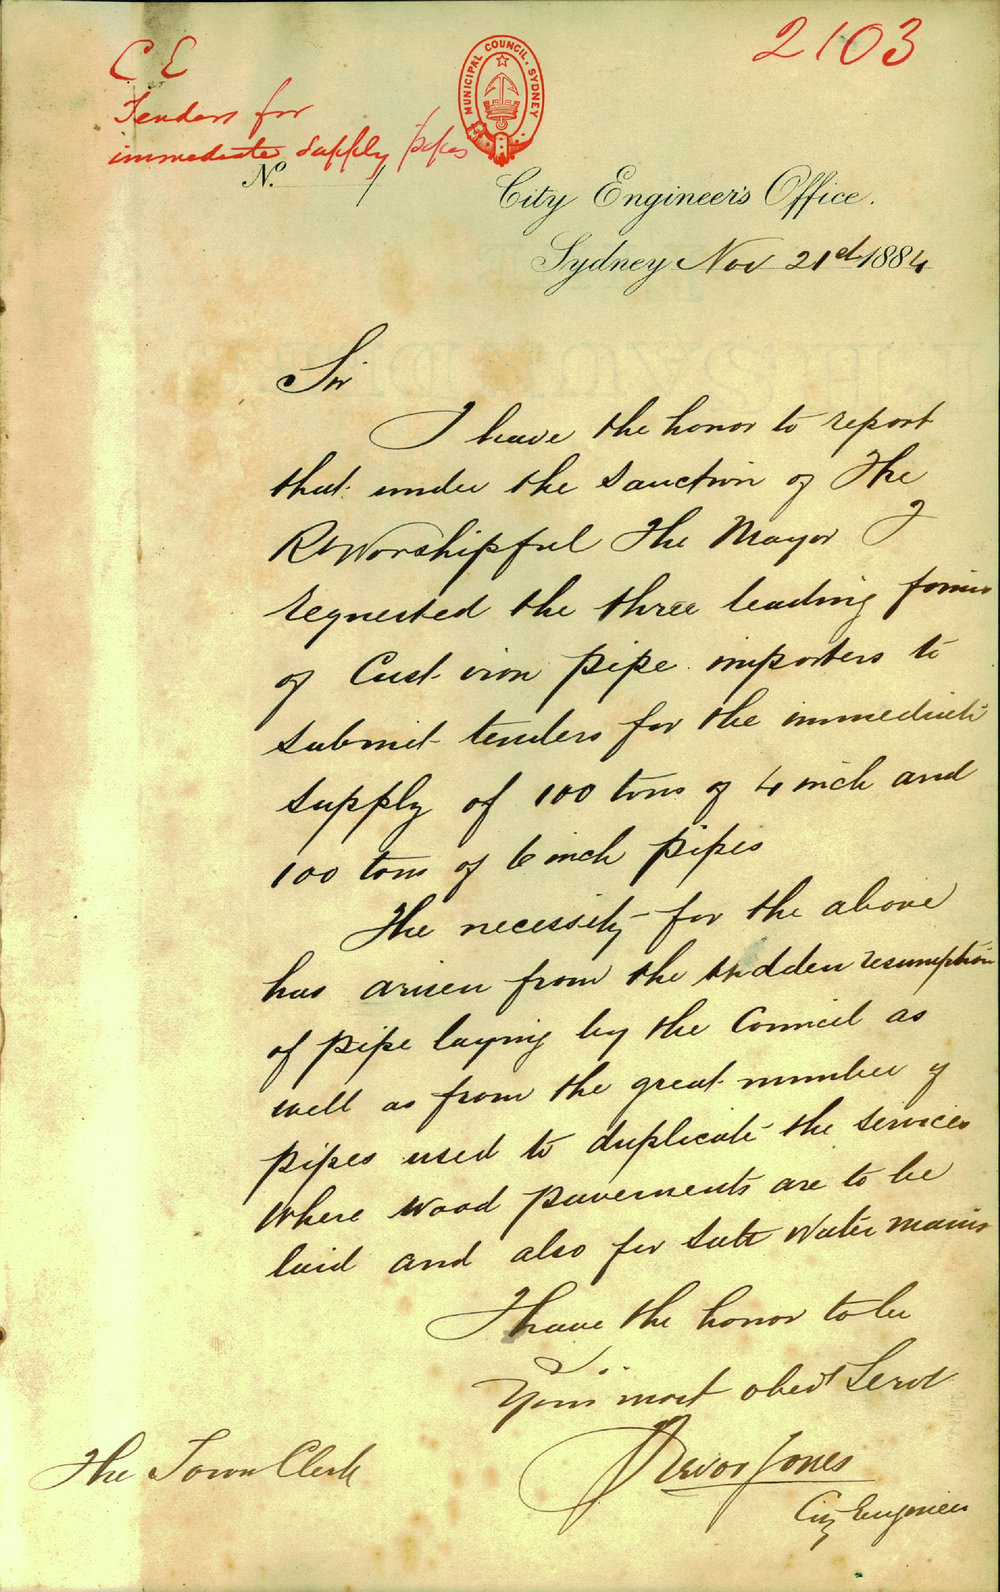 2103
C E
Tenders for
immediate supply pipes
MUNICIPAL COUNCIL. SYDNEY
No.
City Engineer's Office.
Sydney Nov 21st 1884
Sir
I have the honor to report
that under the sanction of The
Rt Worshipful The Mayor I
requested the three leading firms
of Cast iron pipe importers to
submit tenders for the immediate
supply of 100 tons of 4 inch and
100 tons of 6 inch pipes
The necessity for the above
has arisen from the sudden resumption
of pipe laying by the Council as
well as from the great number of
pipes used to duplicate the services
where wood pavements are to be
laid and also for salt water mains
I have the honor to be
Sir
Your most obedt Servt
Trevor Jones
City Engineer
The Town Clerk